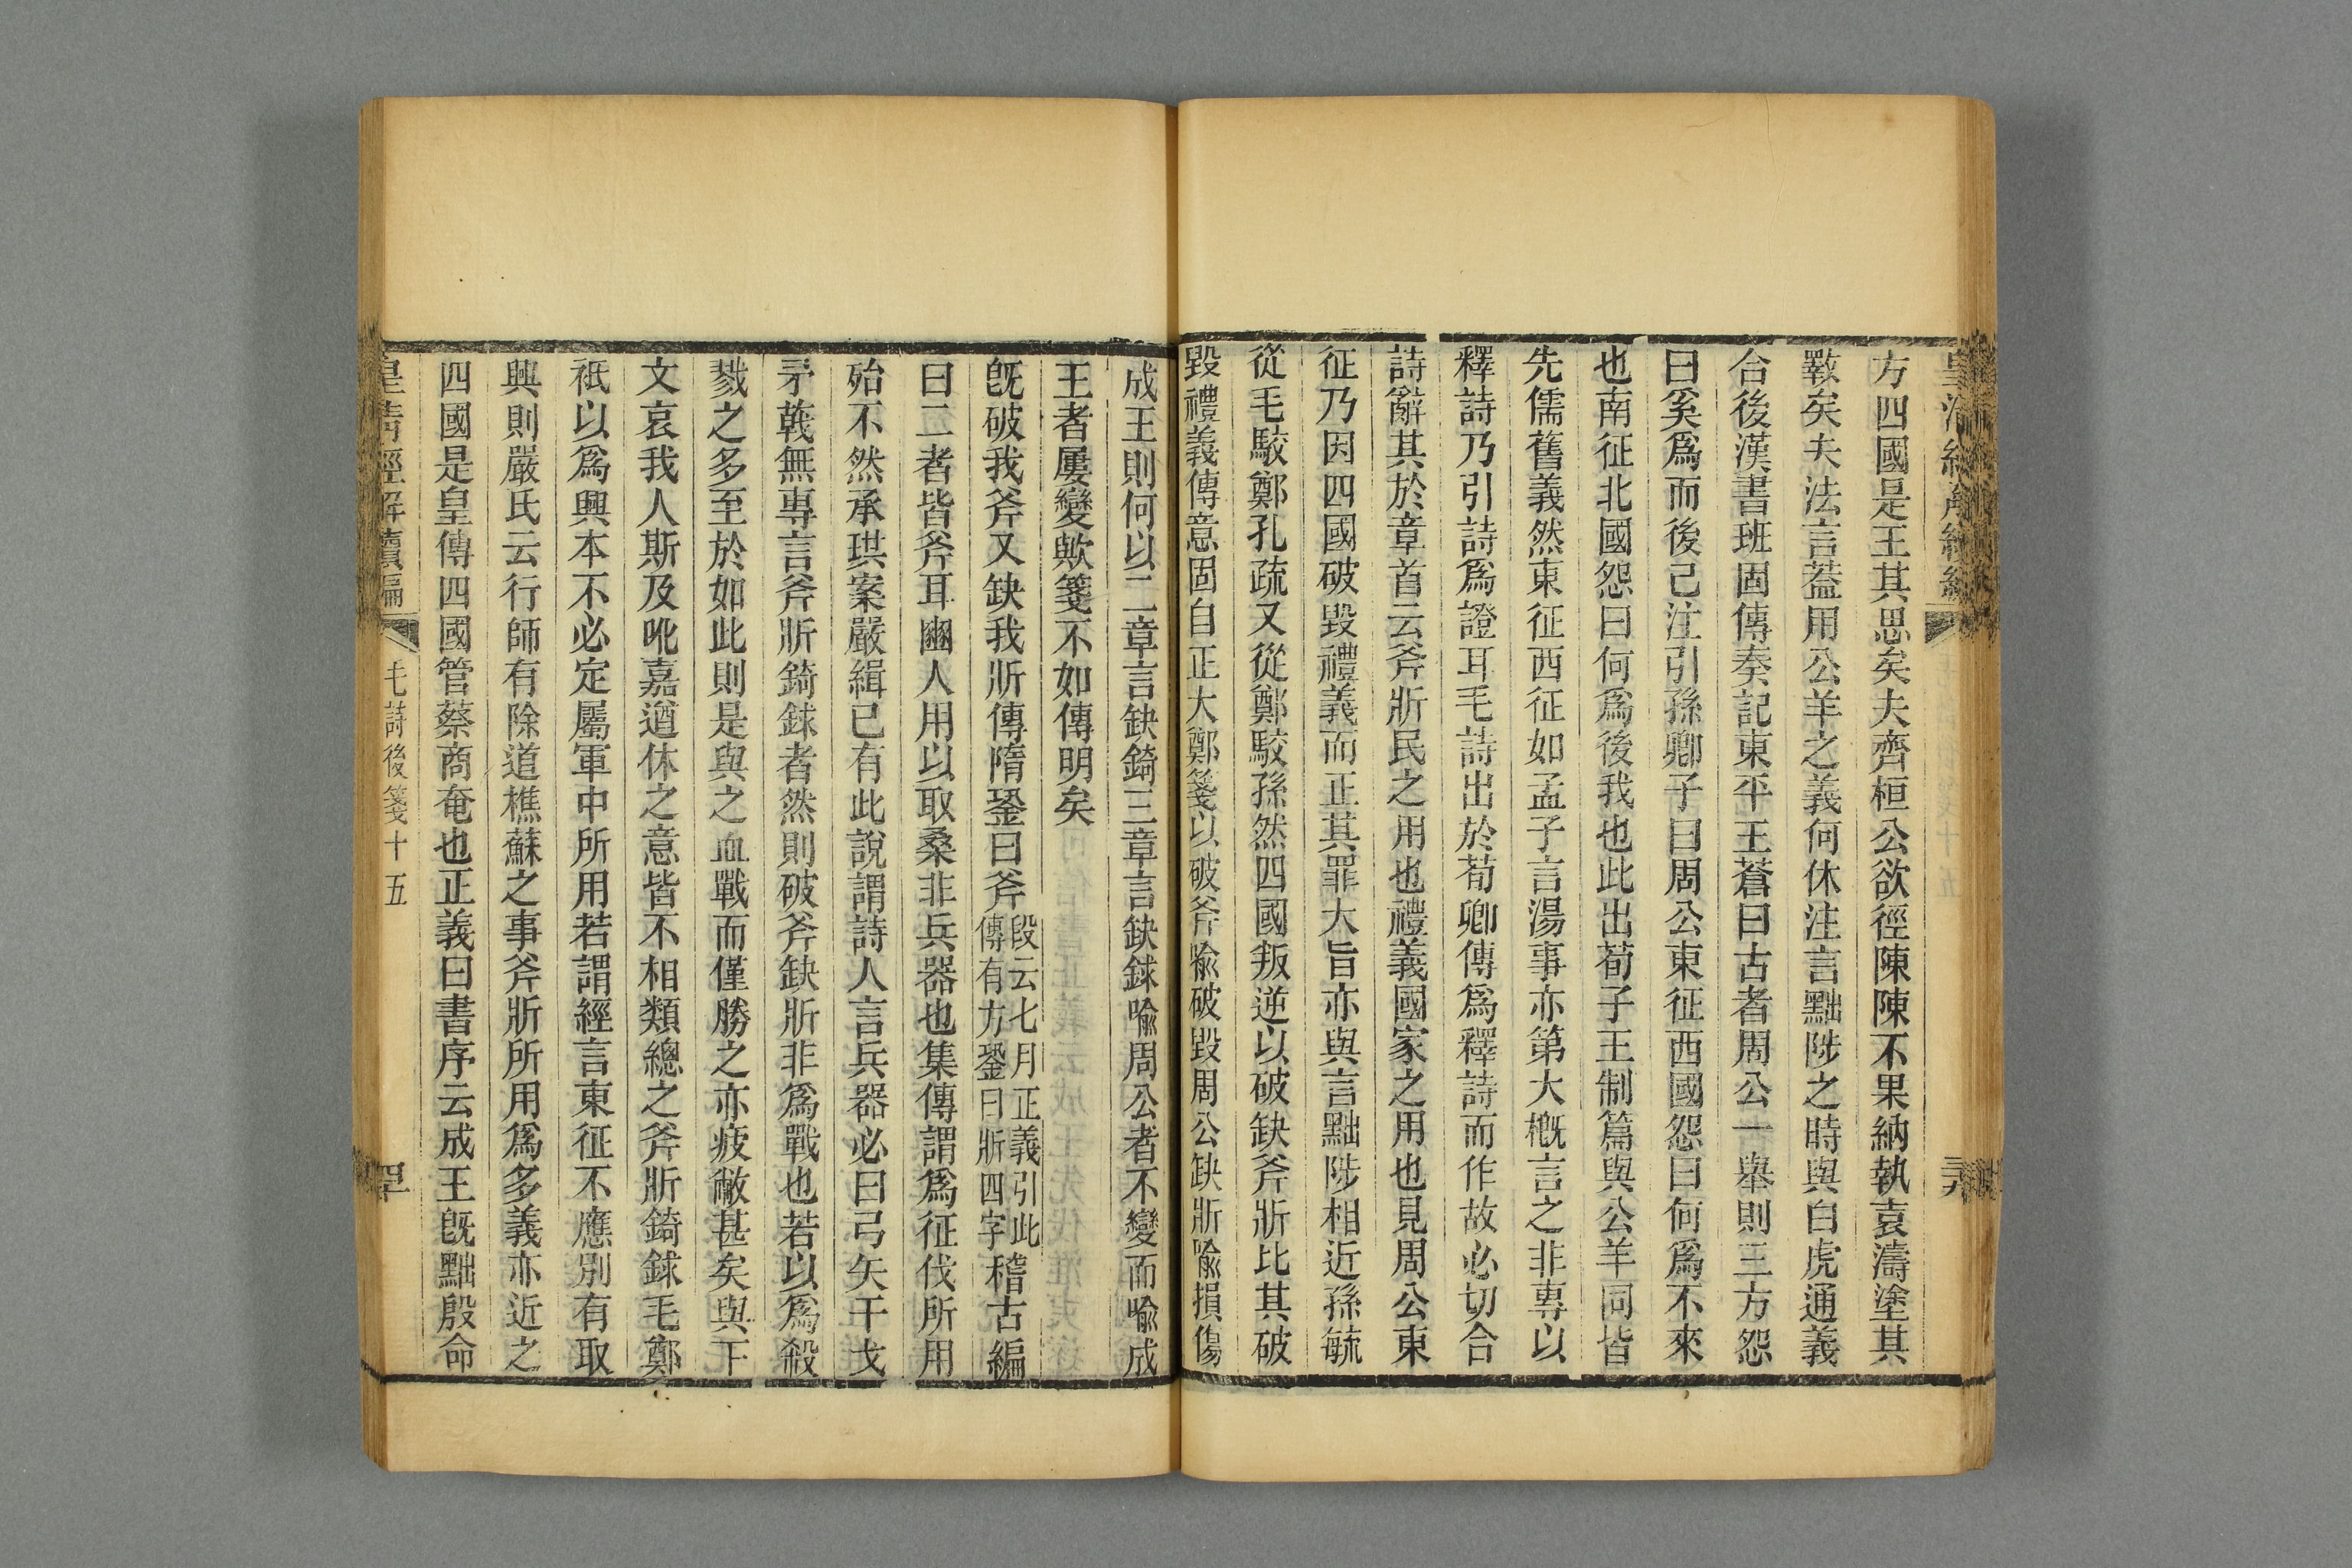 方四國是王其思矣夫齊桓公欲徑陳陳不果納執袁濤塗其
斁矣夫法言葢用公羊之義何休注言黜陟之時與白虎通義
合後漢書班固傳奏記東平王蒼曰古者周公一舉則三方怨
曰奚爲而後己注引孫卿子曰周公東征西國怨曰何爲不來
也南征北國怨曰何爲後我也此出荀子王制篇與公羊同皆
先儒舊義然東征西征如孟子言湯事亦第大槪言之非專以
釋詩乃引詩爲證耳毛詩出於荀卿傳爲釋詩而作故必切合
詩辭其於章首云斧斨民之用也禮義國家之用也見周公東
征乃因四國破毀禮義而正其罪大旨亦與言黜陟相近孫毓
從毛駮鄭孔疏又從鄭駮孫然四國叛逆以破缺斧斨比其破
毀禮義傳意固自正大鄭箋以破斧喩破毀周公缺斨喩損傷
成王則何以二章言缺錡三章言缺銶喩周公者不變而喩成
王者屢變歟箋不如傳明矣
旣破我斧又缺我斨傳隋銎曰斧
段云七月正義引此
傳有方銎曰斨四字
稽古編
曰二者皆斧耳豳人用以取桑非兵器也集傳謂爲征伐所用
殆不然承珙案嚴緝已有此說謂詩人言兵器必曰弓矢干戈
矛戟無專言斧斨錡銶者然則破斧缺斨非爲戰也若以爲殺
戮之多至於如此則是與之血戰而僅勝之亦疲敝甚矣與下
文哀我人斯及吪嘉遒休之意皆不相類總之斧斨錡銶毛鄭
祇以爲興本不必定屬軍中所用若謂經言東征不應別有取
興則嚴氏云行師有除道樵蘇之事斧斨所用爲多義亦近之
四國是皇傳四國管蔡商奄也正義曰書序云成王旣黜殷命
皇淸經解續編
毛詩後箋十五